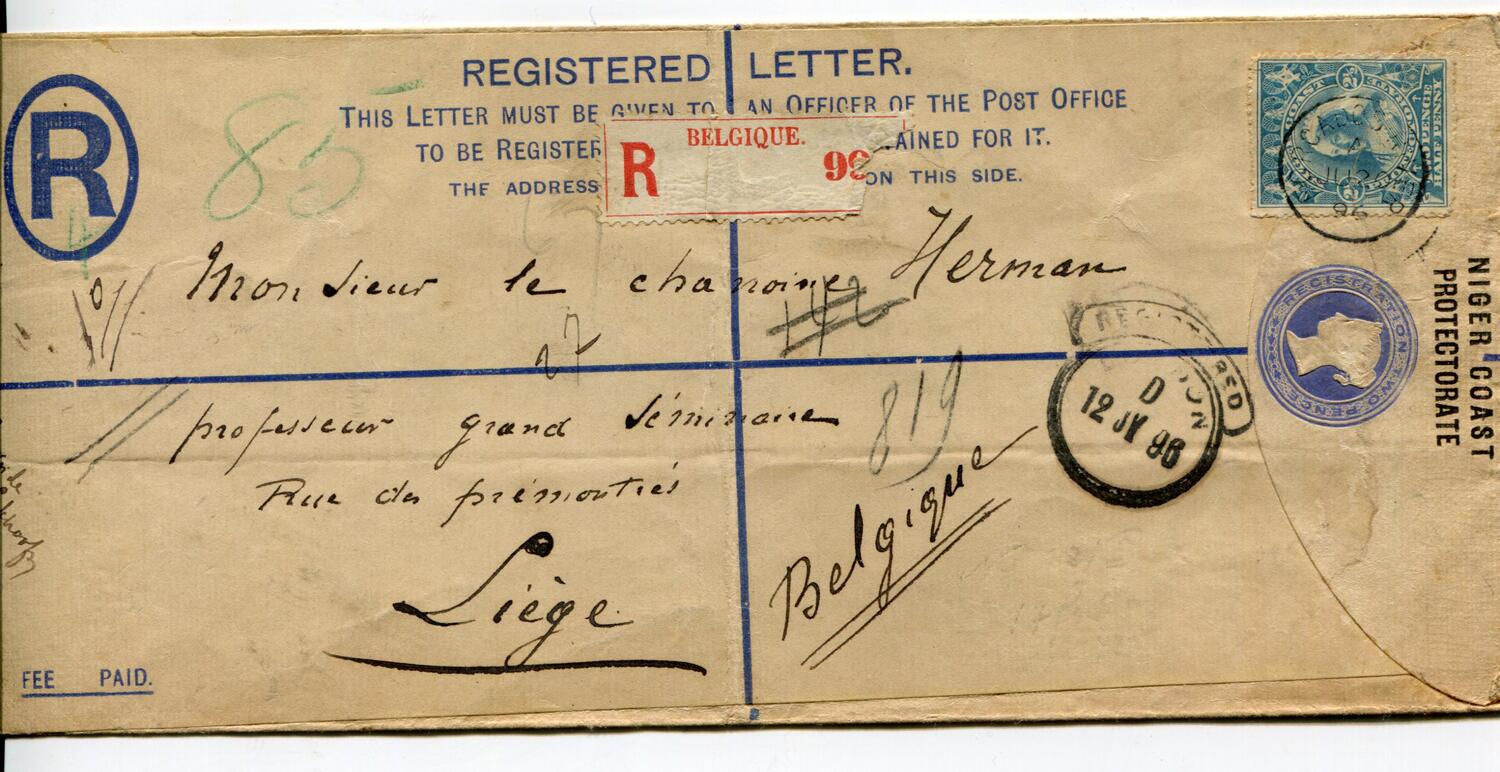 REGISTERED LETTER.
THIS LETTER MUST BE GIVEN TO AN OFFICER OF THE POST OFFICE
TO BE REGISTER AINED FOR IT.
THE ADDRESS ON THIS SIDE.
R
BELGIQUE.
R
85
Monsieur le chanoine Herman
142
27
professeur grand séminaire
819
Rue des prémontrés
Liège
Belgique
FEE PAID.
REGISTERED
D
12 JY 96
HALF PENNY
REGISTRATION TWO PENCE
NIGER COAST
PROTECTORATE